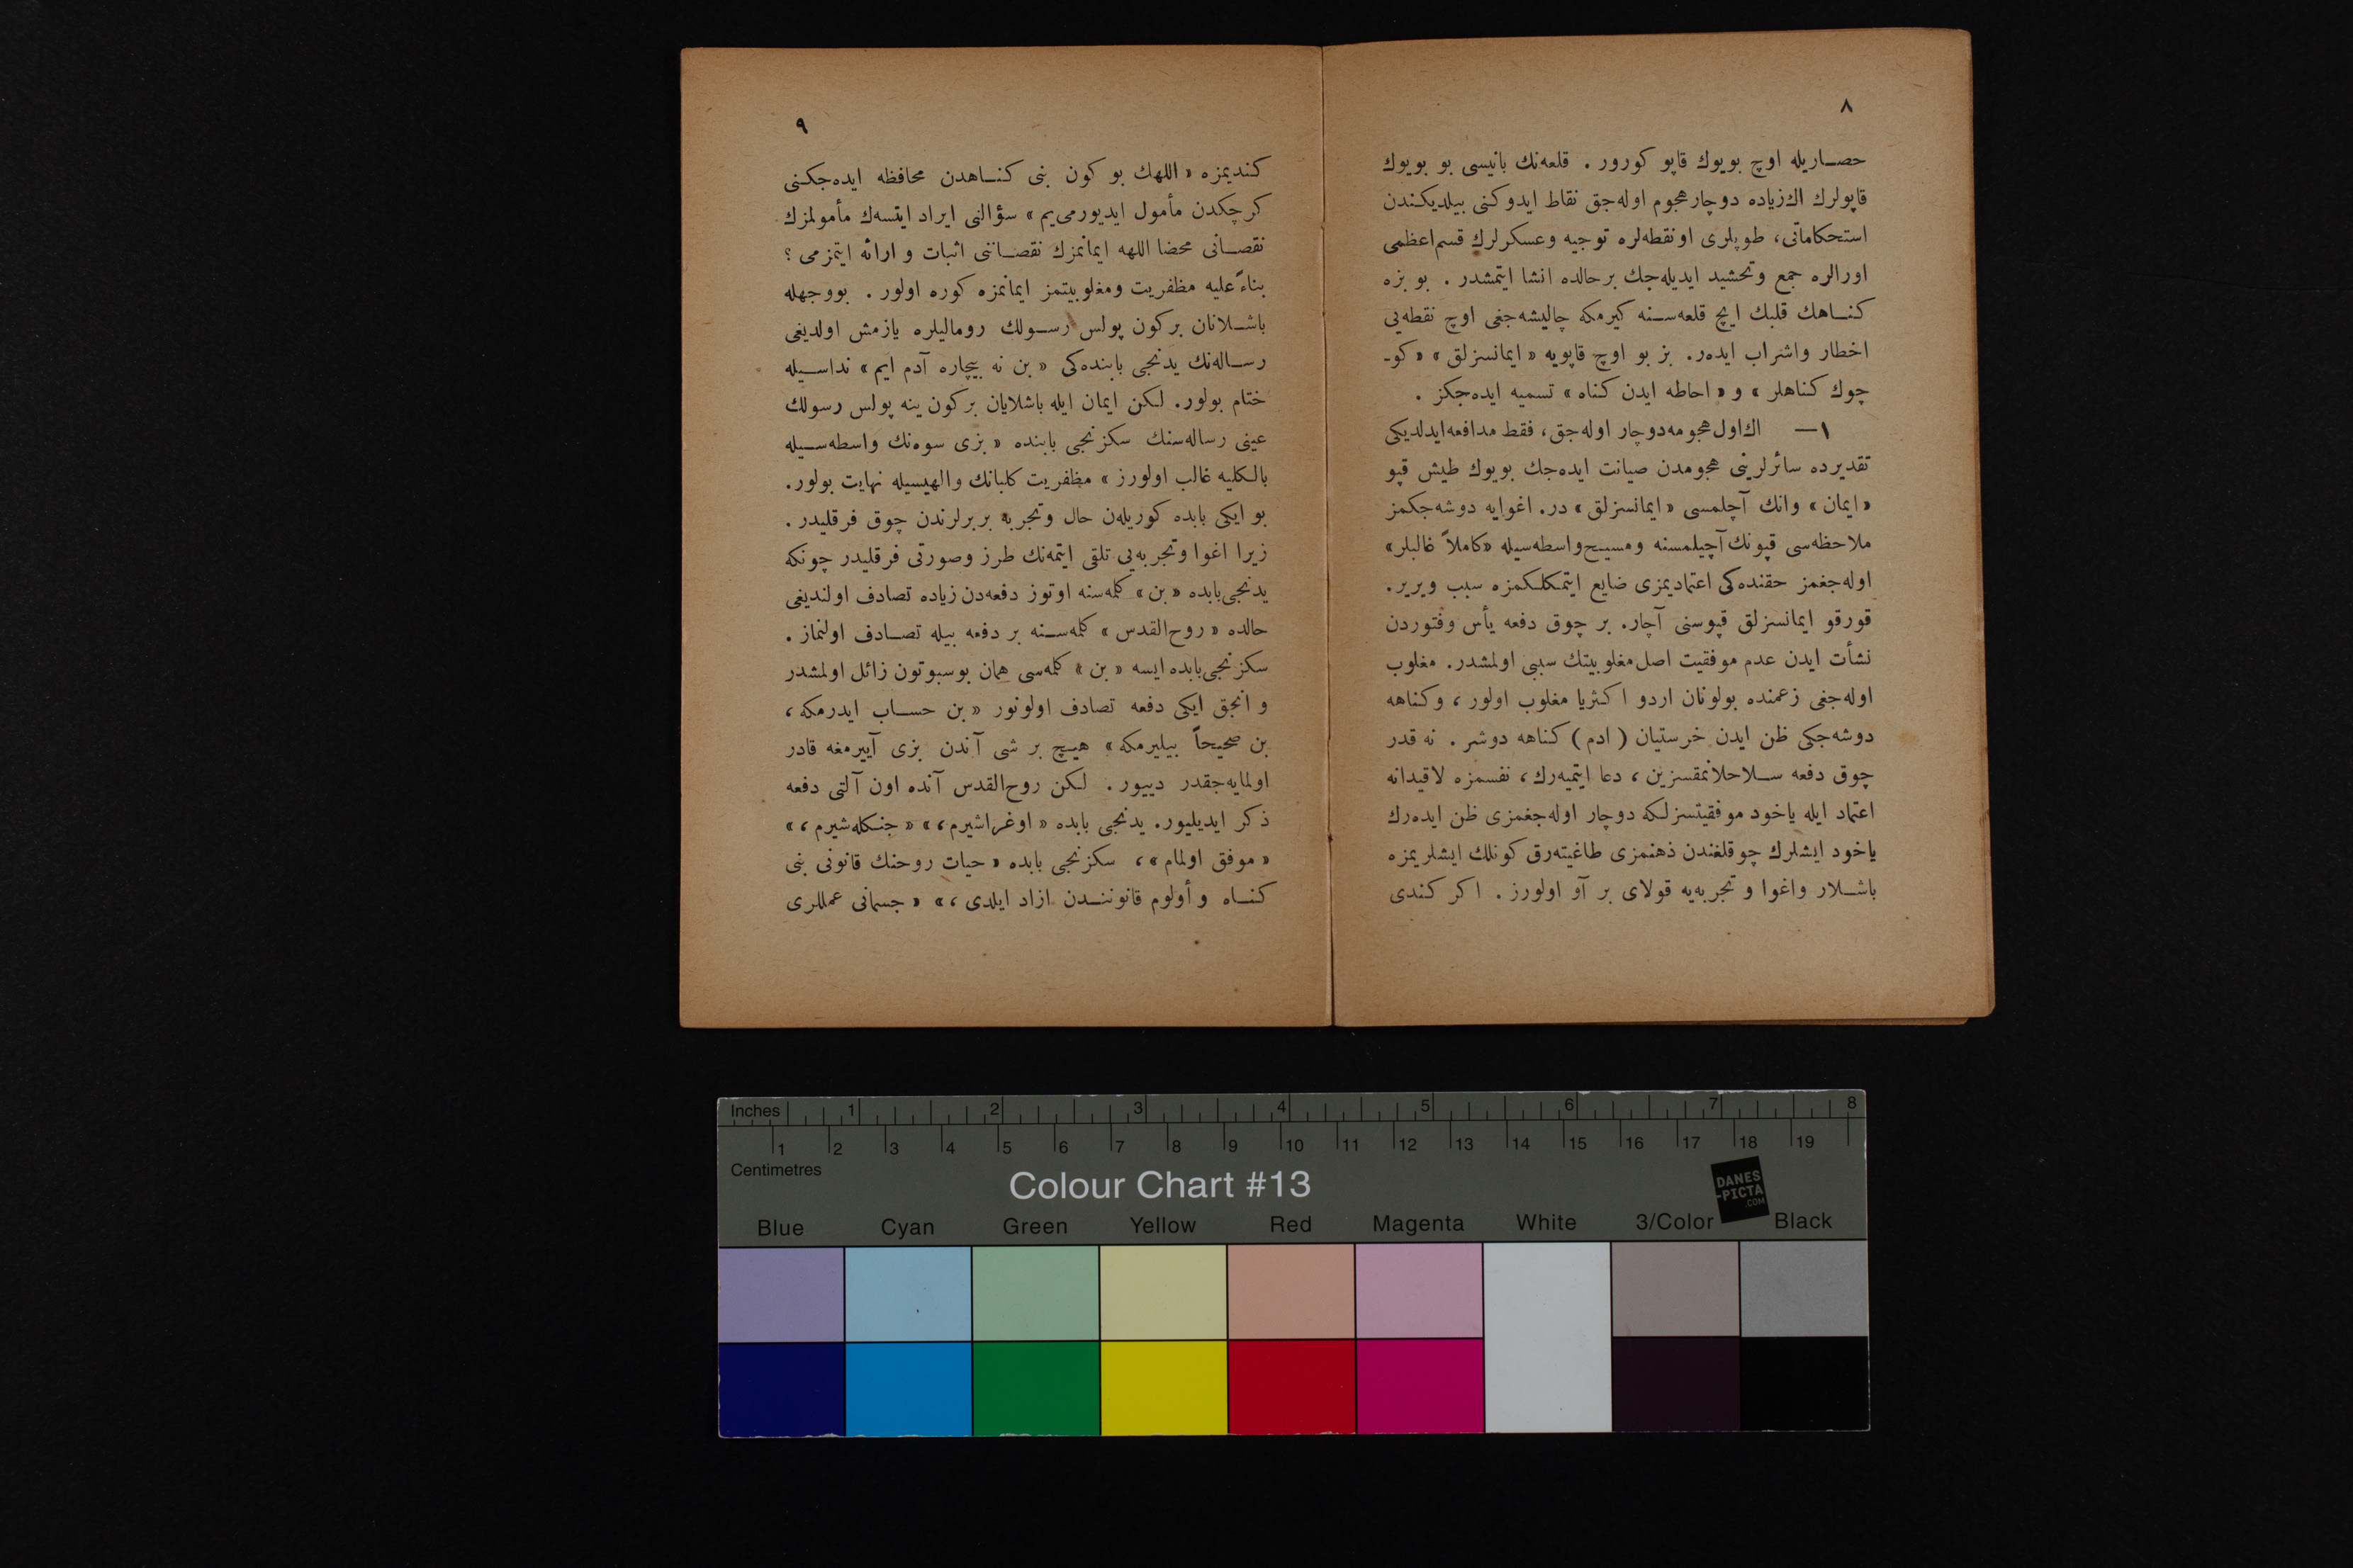 ٨
حصاریله اوچ بویوك قاپو كورور . قلعه‌نك بانیسی بو بویوك
قاپولرك اك زیاده دوچار هجوم اوله‌جق نقاط ایدوكنی بیلدیكندن
استحكاماتی، طوپلری او نقطه‌لره توجیه وعسكرلرك قسم اعظمی
اورالره جمع وتحشید ایدیله‌جك بر حالده انشا ایتمشدر . بو بزه
كناهك قلبك ایچ قلعه‌سنه كیرمكه چالیشه‌جغی اوچ نقطه‌یی
اخطار واشراب ایده‌ر. بز بو اوچ قاپویه « ایمانسزلق » « كو-
چوك كناهلر » و « احاطه ایدن كناه » تسمیه ایده‌جكز .
١— اك اول هجومه دوچار اوله‌جق، فقط مدافعه ایدلدیكی
تقدیرده سائرلرینی هجومدن صیانت ایده‌جك بویوك طیش قپو
« ایمان » وانك آچلمسی « ایمانسزلق » در. اغوایه دوشه‌جكمز
ملاحظه‌سی قپونك آچیلمسنه ومسیح واسطه‌سیله «كاملاً غالبلر»
اوله‌جغمز حقنده‌كی اعتمادیمزی ضایع ایتمكلكمزه سبب ویریر.
قورقو ایمانسزلق قپوسنی آچار. بر چوق دفعه یأس وفتوردن
نشأت ایدن عدم موفقیت اصل مغلوبیتك سببی اولمشدر. مغلوب
اوله‌جغی زعمنده بولونان اردو اكثریا مغلوب اولور ، وكناهه
دوشه‌جكی ظن ایدن خرستیان ( ادم ) كناهه دوشر . نه قدر
چوق دفعه سلاحلانمقسزین ، دعا ایتمیه‌رك ، نفسمزه لاقیدانه
اعتماد ایله یاخود موفقیتسزلكه دوچار اوله‌جغمزی ظن ایده‌رك
یاخود ایشلرك چوقلغندن ذهنمزی طاغیته‌رق كونلك ایشلریمزه
باشلار واغوا و تجربه‌یه قولای بر آو اولورز . اكر كندی
٩
كندیمزه « اللهك بو كون بنی كناهدن محافظه ایده‌جكنی
كرچكدن مأمول ایدیورمی‌یم » سؤالنی ایراد ایتسه‌ك مأمولمزك
نقصانی محضا اللهه ایمانمزك نقصاننی اثبات و ارائه ایتمزمی ؟
بناءً علیه مظفریت ومغلوبیتمز ایمانمزه كوره اولور . بووجهله
باشلانان بركون پولس رسولك رومالیلره یازمش اولدیغی
رساله‌نك یدنجی بابنده‌كی « بن نه بیچاره آدم ایم » نداسیله
ختام بولور. لكن ایمان ایله باشلایان بركون ینه پولس رسولك
عینی رساله‌سنك سكزنجی بابنده « بزی سوه‌نك واسطه‌سیله
بالكلیه غالب اولورز » مظفریت كلبانك والهیسیله نهایت بولور.
بو ایكی بابده كوریله‌ن حال وتجربه بربرلرندن چوق فرقلیدر .
زیرا اغوا وتجربه‌یی تلقی ایتمه‌نك طرز وصورتی فرقلیدر چونكه
یدنجی بابده « بن » كلمه‌سنه اوتوز دفعه‌دن زیاده تصادف اولندیغی
حالده « روح‌القدس » كلمه‌سنه بر دفعه بیله تصادف اولنماز .
سكزنجی بابده ایسه « بن » كلمه‌سی همان بوسبوتون زائل اولمشدر
و انجق ایكی دفعه تصادف اولونور « بن حساب ایدرمكه ،
بن صحیحاً بیلیرمكه » هیچ بر شی آندن بزی آییرمغه قادر
اولمایه‌جقدر دییور . لكن روح‌القدس آنده اون آلتی دفعه
ذكر ایدیلیور. یدنجی بابده « اوغراشیرم ، » « جنكله‌شیرم ، »
« موفق اولمام » ، سكزنجی بابده « حیات روحنك قانونی بنی
كناه و أولوم قانونندن ازاد ایلدی ، » « جسمانی عمللری
Inches 1 2 3 4 5 6 7 8
1 2 3 4 5 6 7 8 9 10 11 12 13 14 15 16 17 18 19
Centimetres
Colour Chart #13
DANES
-PICTA
.COM
Blue Cyan Green Yellow Red Magenta White 3/Color Black